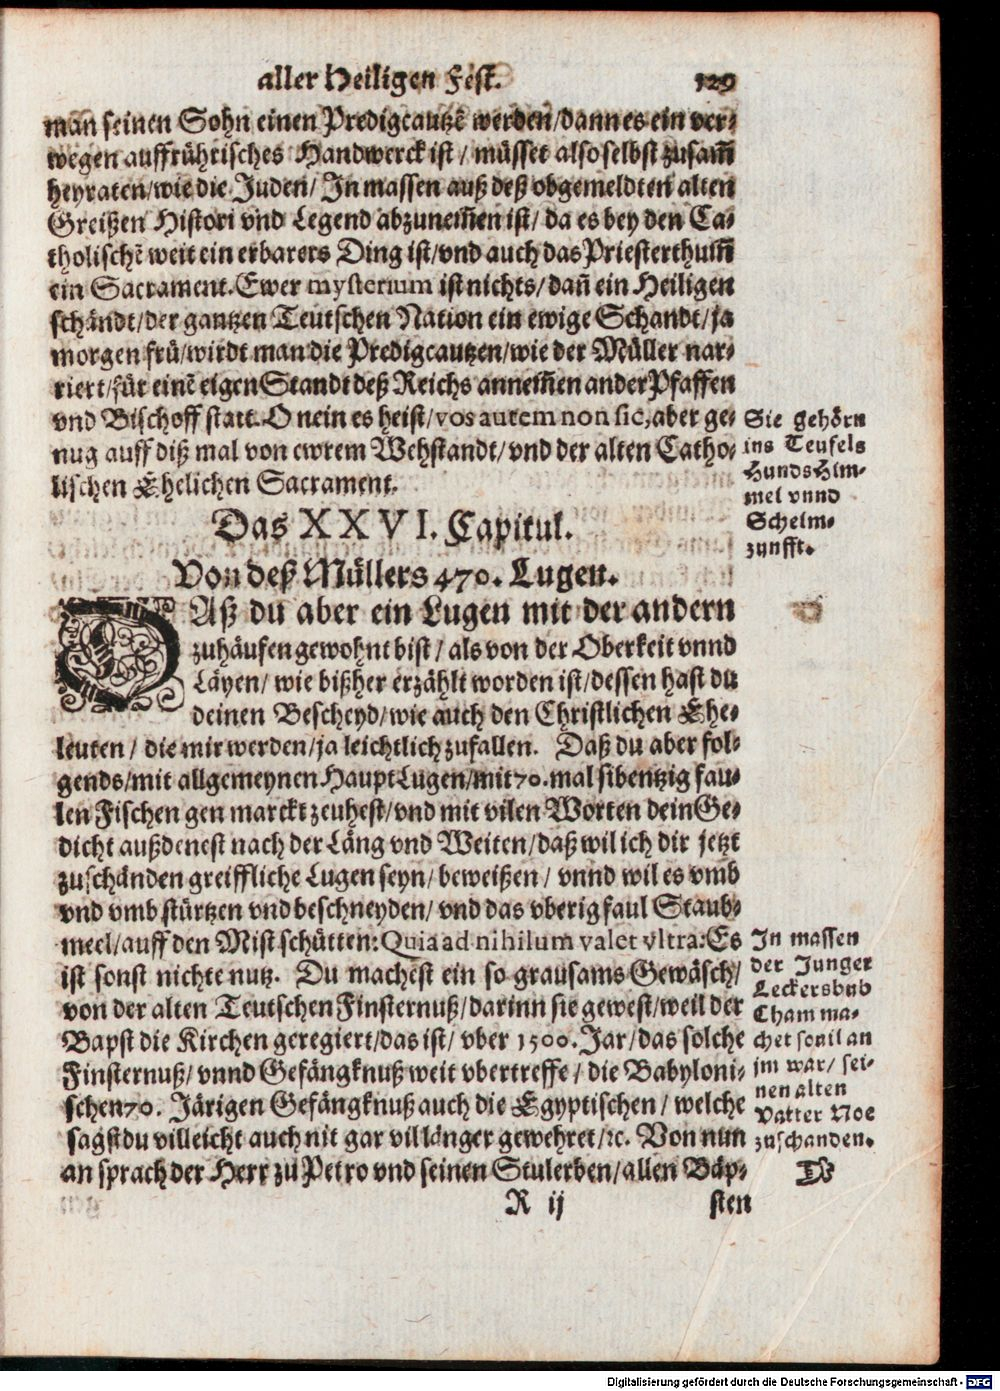 aller Heiligen Fest. 129
man seinen Sohn einen Predigcautzē werden/dann es ein ver-
wegen auffrührisches Handwerck ist / müsset also selbst zusam̄
heyraten/wie die Juden/ In massen auß deß obgemeldten alten
Greißen Histori vnd Legend abzunem̄en ist/ da es bey den Ca-
tholischē weit ein erbarers Ding ist/vnd auch das Priesterthum̄
ein Sacrament. Ewer mysterium ist nichts/ dañ ein Heiligen
schändt/der gantzen Teutschen Nation ein ewige Schandt/ja
morgen frü/wirdt man die Predigcautzen/wie der Müller nar-
riert/für einē eigen Standt deß Reichs annem̄en ander Pfaffen
vnd Bischoff statt. O nein es heist/vos autem non sic, aber ge-
nug auff diß mal von ewrem Wehstandt/vnd der alten Catho-
lischen Ehelichen Sacrament.
Sie gehörn
ins Teufels
Hunds Him-
mel vnnd
Schelm-
zunfft.
Das XXVI. Capitul.
Von deß Müllers 470. Lugen.
DAß du aber ein Lugen mit der andern
zuhäufen gewohnt bist / als von der Oberkeit vnnd
Läyen/ wie bißher erzählt worden ist/dessen hast du
deinen Bescheyd/wie auch den Christlichen Ehe-
leuten / die mir werden/ja leichtlich zufallen. Daß du aber fol-
gends/mit allgemeynen Haupt Lugen/mit 70. mal sibentzig fau-
len Fischen gen marckt zeuhest/vnd mit vilen Worten dein Ge-
dicht außdenest nach der Läng vnd Weiten/daß wil ich dir jetzt
zuschänden greiffliche Lugen seyn/ beweißen / vnnd wil es vmb
vnd vmb stürtzen vnd beschneyden/ vnd das vberig faul Staub-
meel/auff den Mist schütten: Quia ad nihilum valet vltra: Es
ist sonst nichte nutz. Du machest ein so grausams Gewäsch/
von der alten Teutschen Finsternuß/darinn sie gewest/weil der
Bapst die Kirchen geregiert/das ist/ vber 1500. Jar/das solche
Finsternuß/ vnnd Gefängknuß weit vbertreffe / die Babyloni-
schen 70. Järigen Gefängknuß auch die Egyptischen / welche
sagst du villeicht auch nit gar vil länger gewehret/ꝛc. Von nun
an sprach der Herr zu Petro vnd seinen Stulerben/allen Bäp-
In massen
der Junger
Leckersbub
Cham ma-
chet souil an
jm war/ sei-
nen alten
Vatter Noe
zuschanden.
R ij sten
Digitalisierung gefördert durch die Deutsche Forschungsgemeinschaft - DFG